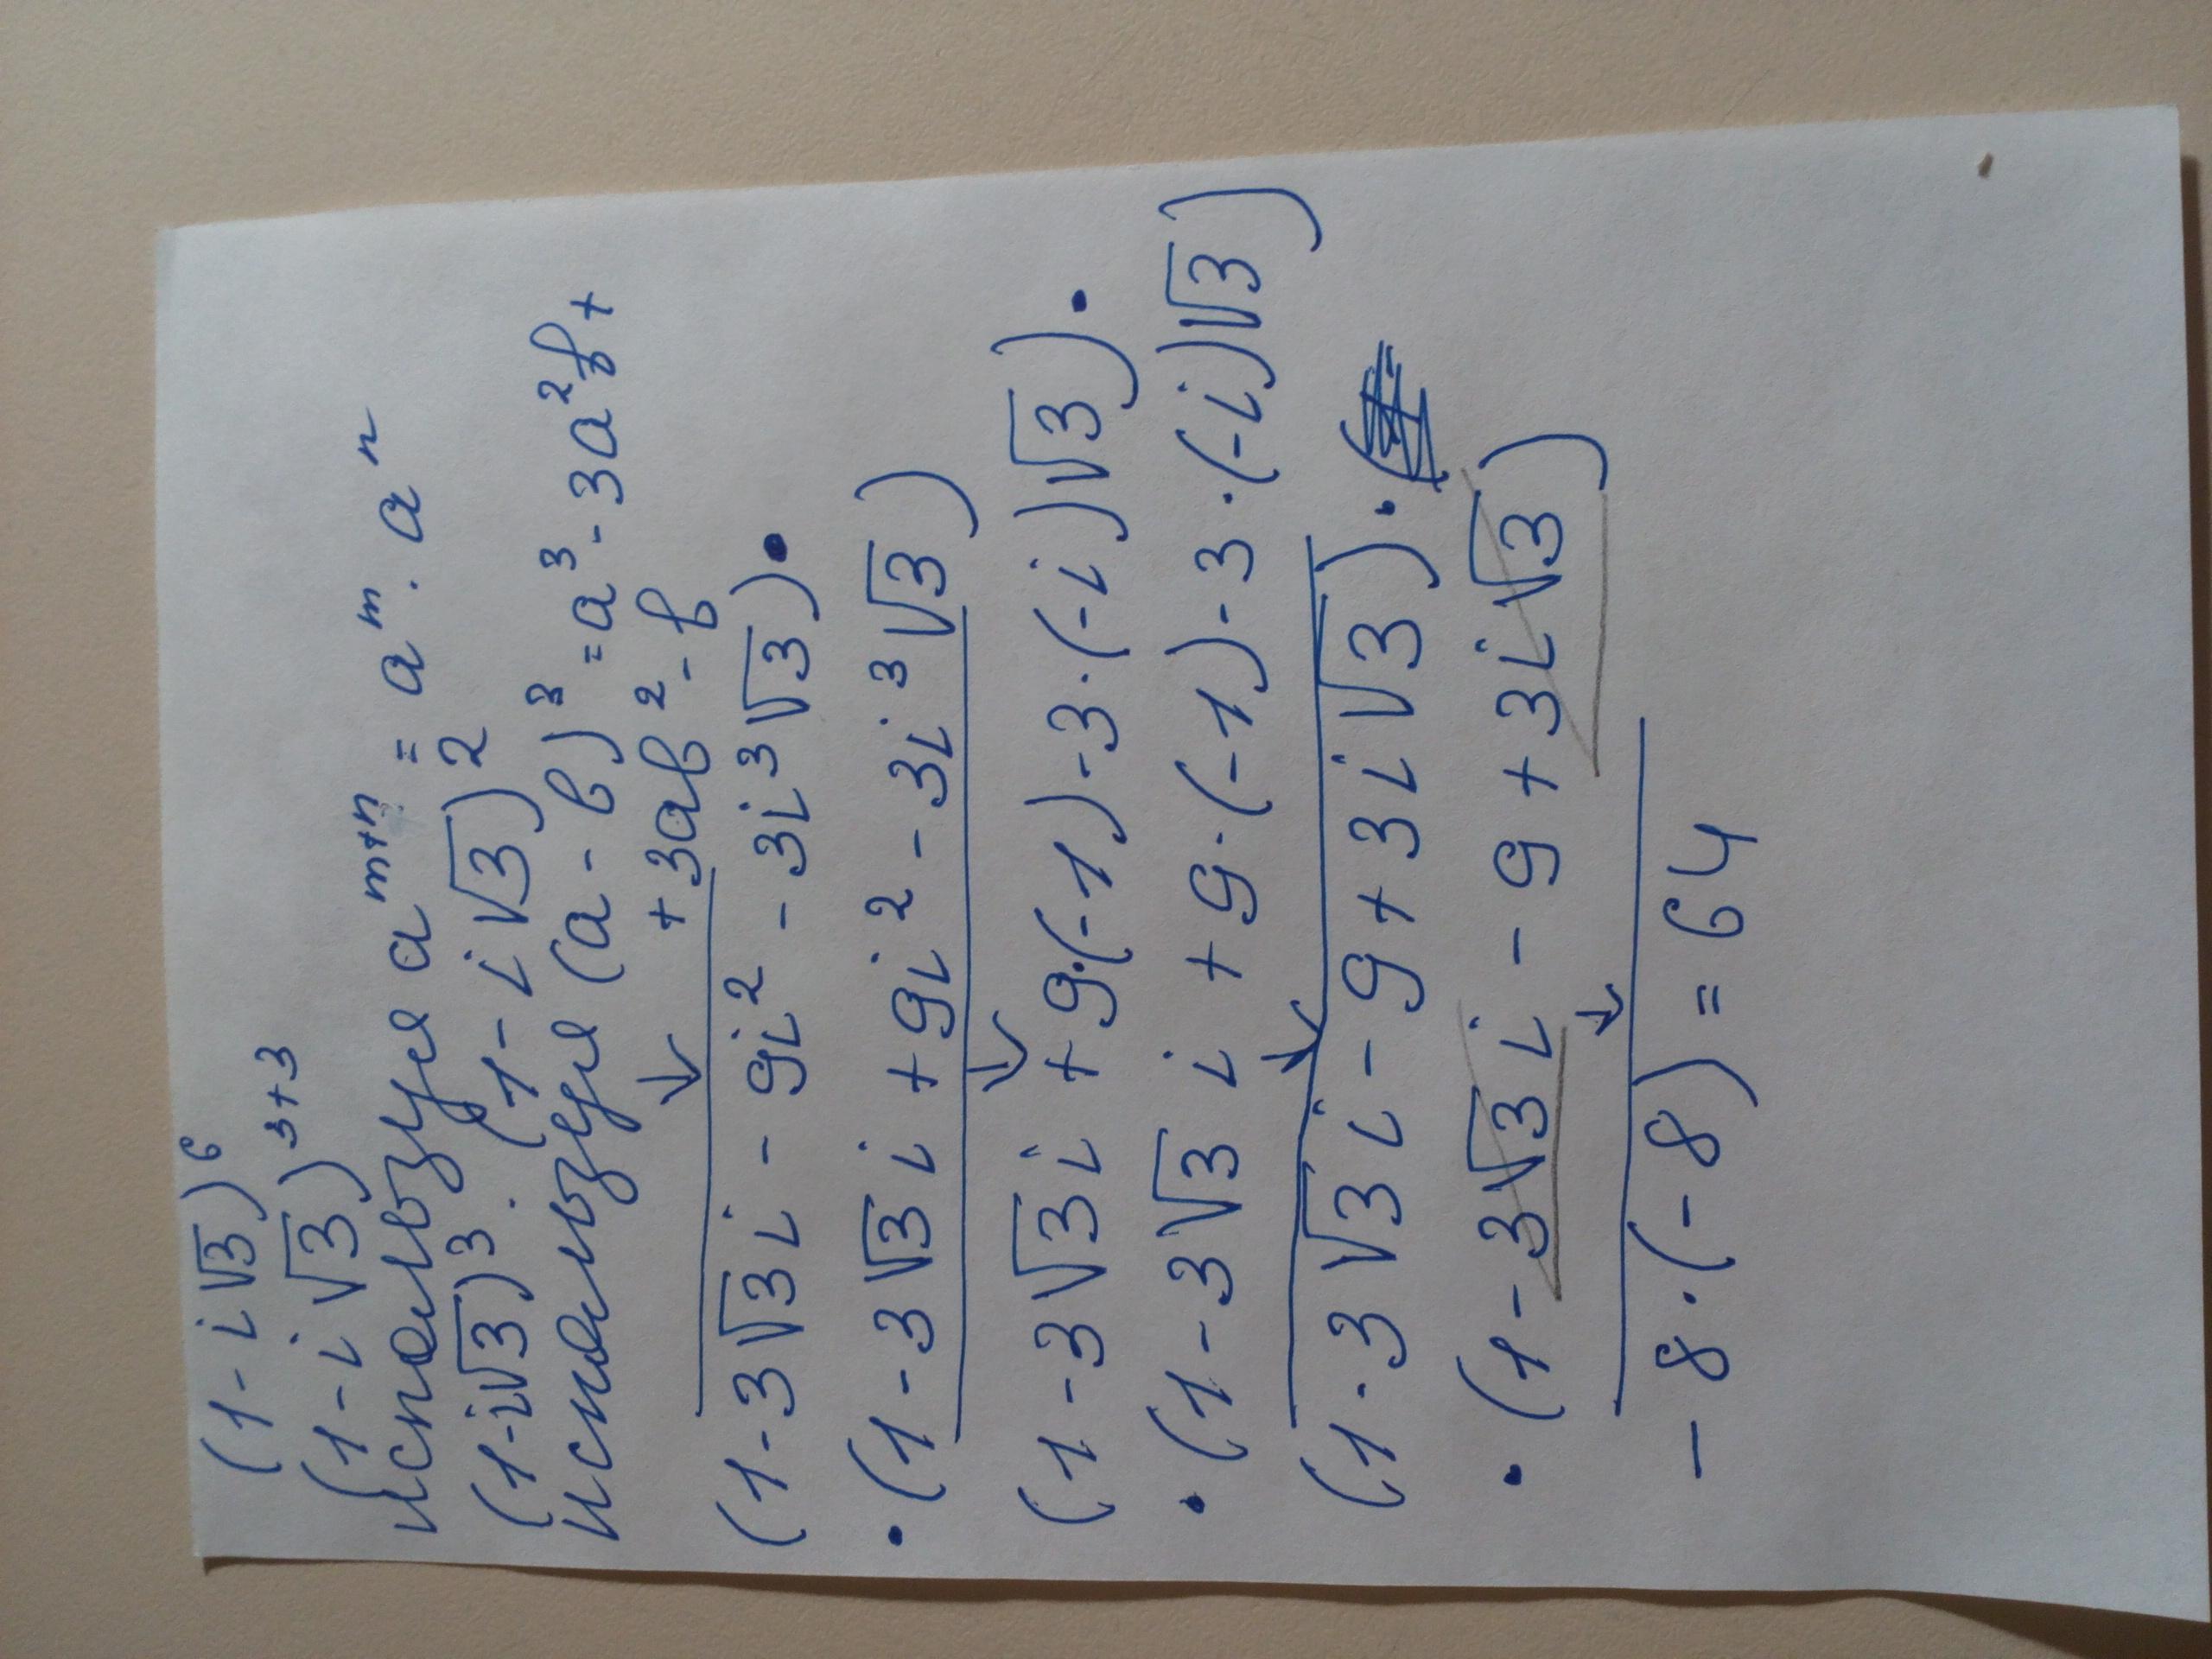 (1-i√3)⁶
(1-i√3)³⁺³
использую aᵐ⁺ⁿ = aᵐ · aⁿ
(1-i√3)³ · (1-i√3)²
использую (a-b)³ = a³ - 3a²b +
+ 3ab² - b
(1-3√3i - 9i² - 3i³√3) •
• (1-3√3i + 9i² - 3i³√3)
(1-3√3i + 9·(-1) - 3·(-i)√3) •
• (1-3√3i + 9·(-1) - 3·(-i)√3)
(1-3√3i - 9 + 3i√3) •
• (1-3√3i - 9 + 3i√3)
-8·(-8) = 64